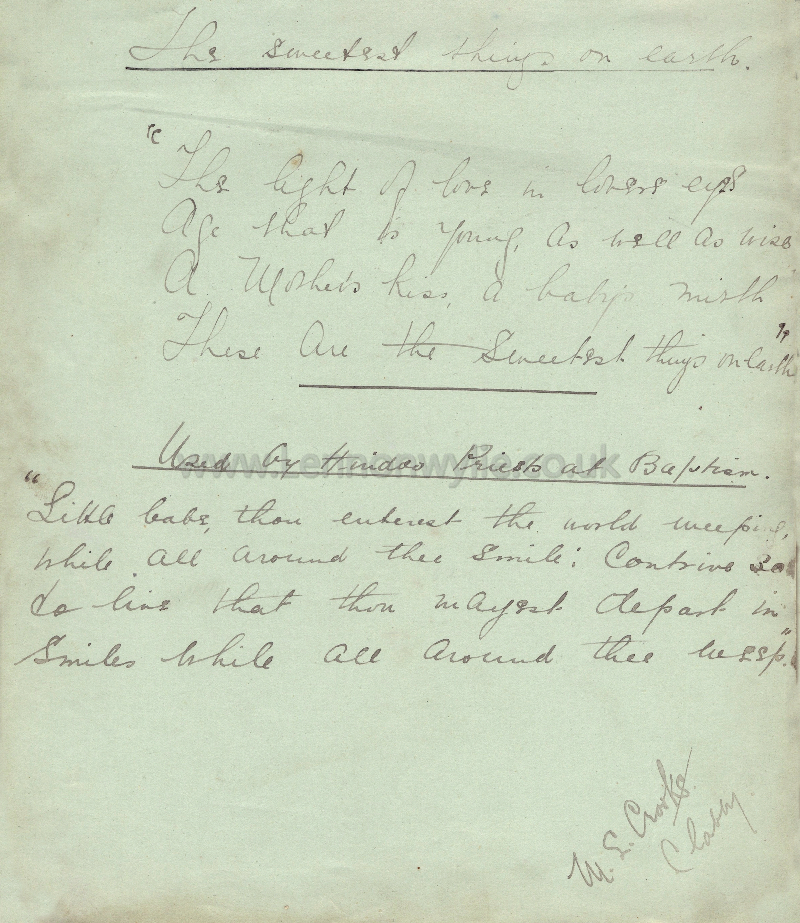 The sweetest things on earth.
"The light of love in lovers eyes
Age that is young, as well as wise
A Mother's kiss, a baby's mirth
These are the sweetest things on earth"
Used by Hindoo Priests at Baptism.
www.Lennonwylie.co.uk
"Little babe, thou enterest the world weeping,
while all around thee smile; Contrive so
to live that thou mayest depart in
smiles while all around thee weep."
M. E. Crooks
Clabby